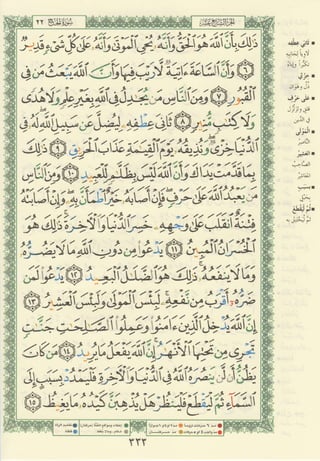 سورة الحج ٢٢
ذَٰلِكَ بِأَنَّ ٱللَّهَ هُوَ ٱلْحَقُّ وَأَنَّهُۥ يُحْىِ ٱلْمَوْتَىٰ وَأَنَّهُۥ عَلَىٰ كُلِّ شَىْءٍ قَدِيرٌ
٦ وَأَنَّ ٱلسَّاعَةَ ءَاتِيَةٌ لَّا رَيْبَ فِيهَا وَأَنَّ ٱللَّهَ يَبْعَثُ مَن فِى
ٱلْقُبُورِ ٧ وَمِنَ ٱلنَّاسِ مَن يُجَٰدِلُ فِى ٱللَّهِ بِغَيْرِ عِلْمٍ وَلَا هُدًى
وَلَا كِتَٰبٍ مُّنِيرٍ ٨ ثَانِىَ عِطْفِهِۦ لِيُضِلَّ عَن سَبِيلِ ٱللَّهِ لَهُۥ فِى
ٱلدُّنْيَا خِزْىٌ وَنُذِيقُهُۥ يَوْمَ ٱلْقِيَٰمَةِ عَذَابَ ٱلْحَرِيقِ ٩ ذَٰلِكَ
بِمَا قَدَّمَتْ يَدَاكَ وَأَنَّ ٱللَّهَ لَيْسَ بِظَلَّٰمٍ لِّلْعَبِيدِ ١٠ وَمِنَ ٱلنَّاسِ
مَن يَعْبُدُ ٱللَّهَ عَلَىٰ حَرْفٍ فَإِنْ أَصَابَهُۥ خَيْرٌ ٱطْمَأَنَّ بِهِۦ وَإِنْ أَصَابَتْهُ
فِتْنَةٌ ٱنقَلَبَ عَلَىٰ وَجْهِهِۦ خَسِرَ ٱلدُّنْيَا وَٱلْءَاخِرَةَ ذَٰلِكَ هُوَ
ٱلْخُسْرَانُ ٱلْمُبِينُ ١١ يَدْعُوا۟ مِن دُونِ ٱللَّهِ مَا لَا يَضُرُّهُۥ
وَمَا لَا يَنفَعُهُۥ ذَٰلِكَ هُوَ ٱلضَّلَٰلُ ٱلْبَعِيدُ ١٢ يَدْعُوا۟ لَمَن
ضَرُّهُۥٓ أَقْرَبُ مِن نَّفْعِهِۦ لَبِئْسَ ٱلْمَوْلَىٰ وَلَبِئْسَ ٱلْعَشِيرُ ١٣
إِنَّ ٱللَّهَ يُدْخِلُ ٱلَّذِينَ ءَامَنُوا۟ وَعَمِلُوا۟ ٱلصَّٰلِحَٰتِ جَنَّٰتٍ
تَجْرِى مِن تَحْتِهَا ٱلْأَنْهَٰرُ إِنَّ ٱللَّهَ يَفْعَلُ مَا يُرِيدُ ١٤ مَن كَانَ
يَظُنُّ أَن لَّن يَنصُرَهُ ٱللَّهُ فِى ٱلدُّنْيَا وَٱلْءَاخِرَةِ فَلْيَمْدُدْ بِسَبَبٍ إِلَى
ٱلسَّمَآءِ ثُمَّ لْيَقْطَعْ فَلْيَنظُرْ هَلْ يُذْهِبَنَّ كَيْدُهُۥ مَا يَغِيظُ ١٥
ثَانِيَ عِطْفِهِ
خِزْيٌ
عَلَى حَرْفٍ
الْمَوْلَى
الْعَشِيرُ
بِسَبَبٍ
٣٣٣